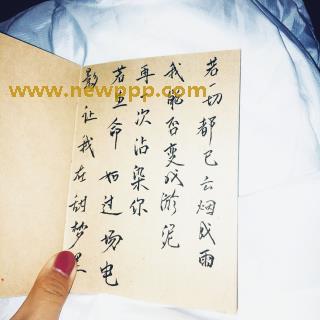 若一切都已云烟成雨
我能否变成淤泥
再次沾染你
若生命如过场电
影让我在甜梦里
www.newppp.com